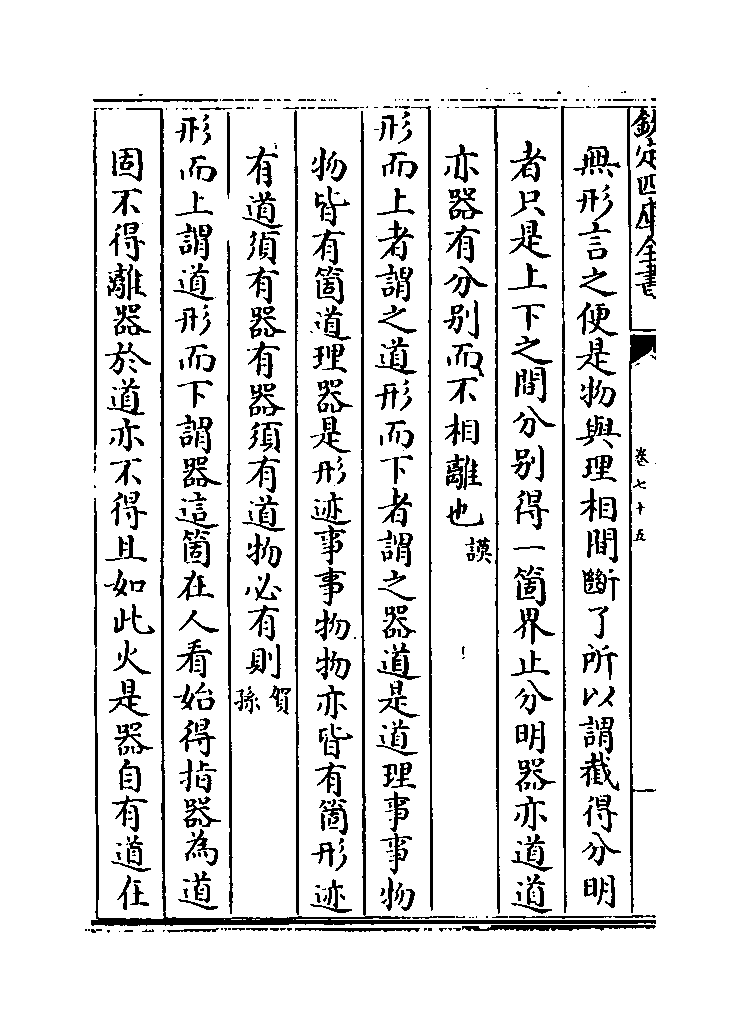 欽定四庫全書
卷七十五
無形言之便是物與理相間斷了所以謂截得分明
者只是上下之間分别得一箇界止分明器亦道道
亦器有分别而不相離也謨
形而上者謂之道形而下者謂之器道是道理事事物
物皆有箇道理器是形迹事事物物亦皆有箇形迹
有道須有器有器須有道物必有則賀孫
形而上謂道形而下謂器這箇在人看始得指器為道
固不得離器於道亦不得且如此火是器自有道在